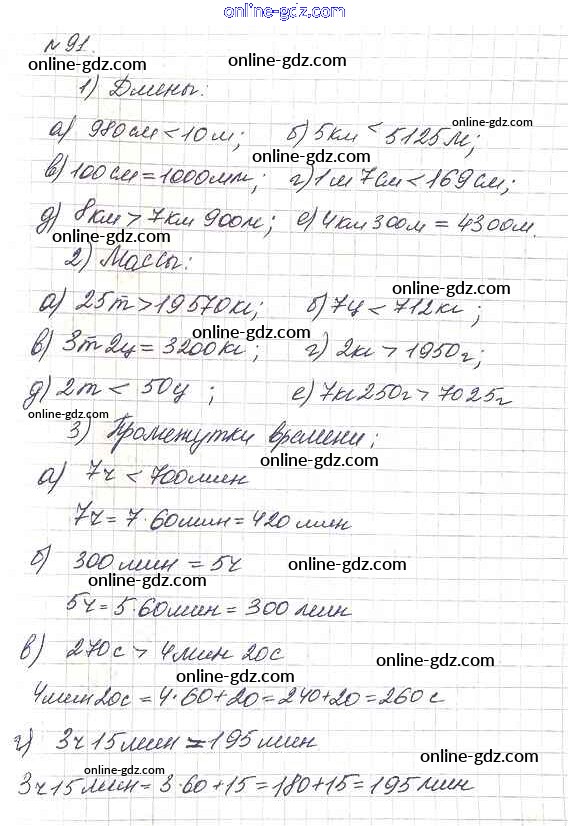 online-gdz.com
№91.
online-gdz.com
1) Длины:
online-gdz.com
а) 980см < 10м; б) 5км < 5125м;
online-gdz.com
в) 100см = 1000мм; г) 1м 7см < 169см;
online-gdz.com
д) 8км > 7км 900м; е) 4км 300м = 4300м.
online-gdz.com
2) Массы:
online-gdz.com
а) 25т > 19570кг; б) 7ц < 712кг;
online-gdz.com
в) 3т 2ц = 3200кг; г) 2кг > 1950г;
online-gdz.com
д) 2т < 50ц; е) 7кг 250г > 7025г
online-gdz.com
3) Промежутки времени;
online-gdz.com
а) 7ч < 700мин
7ч = 7·60мин = 420мин
б) 300мин = 5ч
online-gdz.com
online-gdz.com
5ч = 5·60мин = 300мин
в) 270с > 4мин 20с
online-gdz.com
online-gdz.com
4мин 20с = 4·60+20 = 240+20 = 260с
г) 3ч 15мин = 195мин
online-gdz.com
online-gdz.com
3ч 15мин = 3·60+15 = 180+15 = 195мин